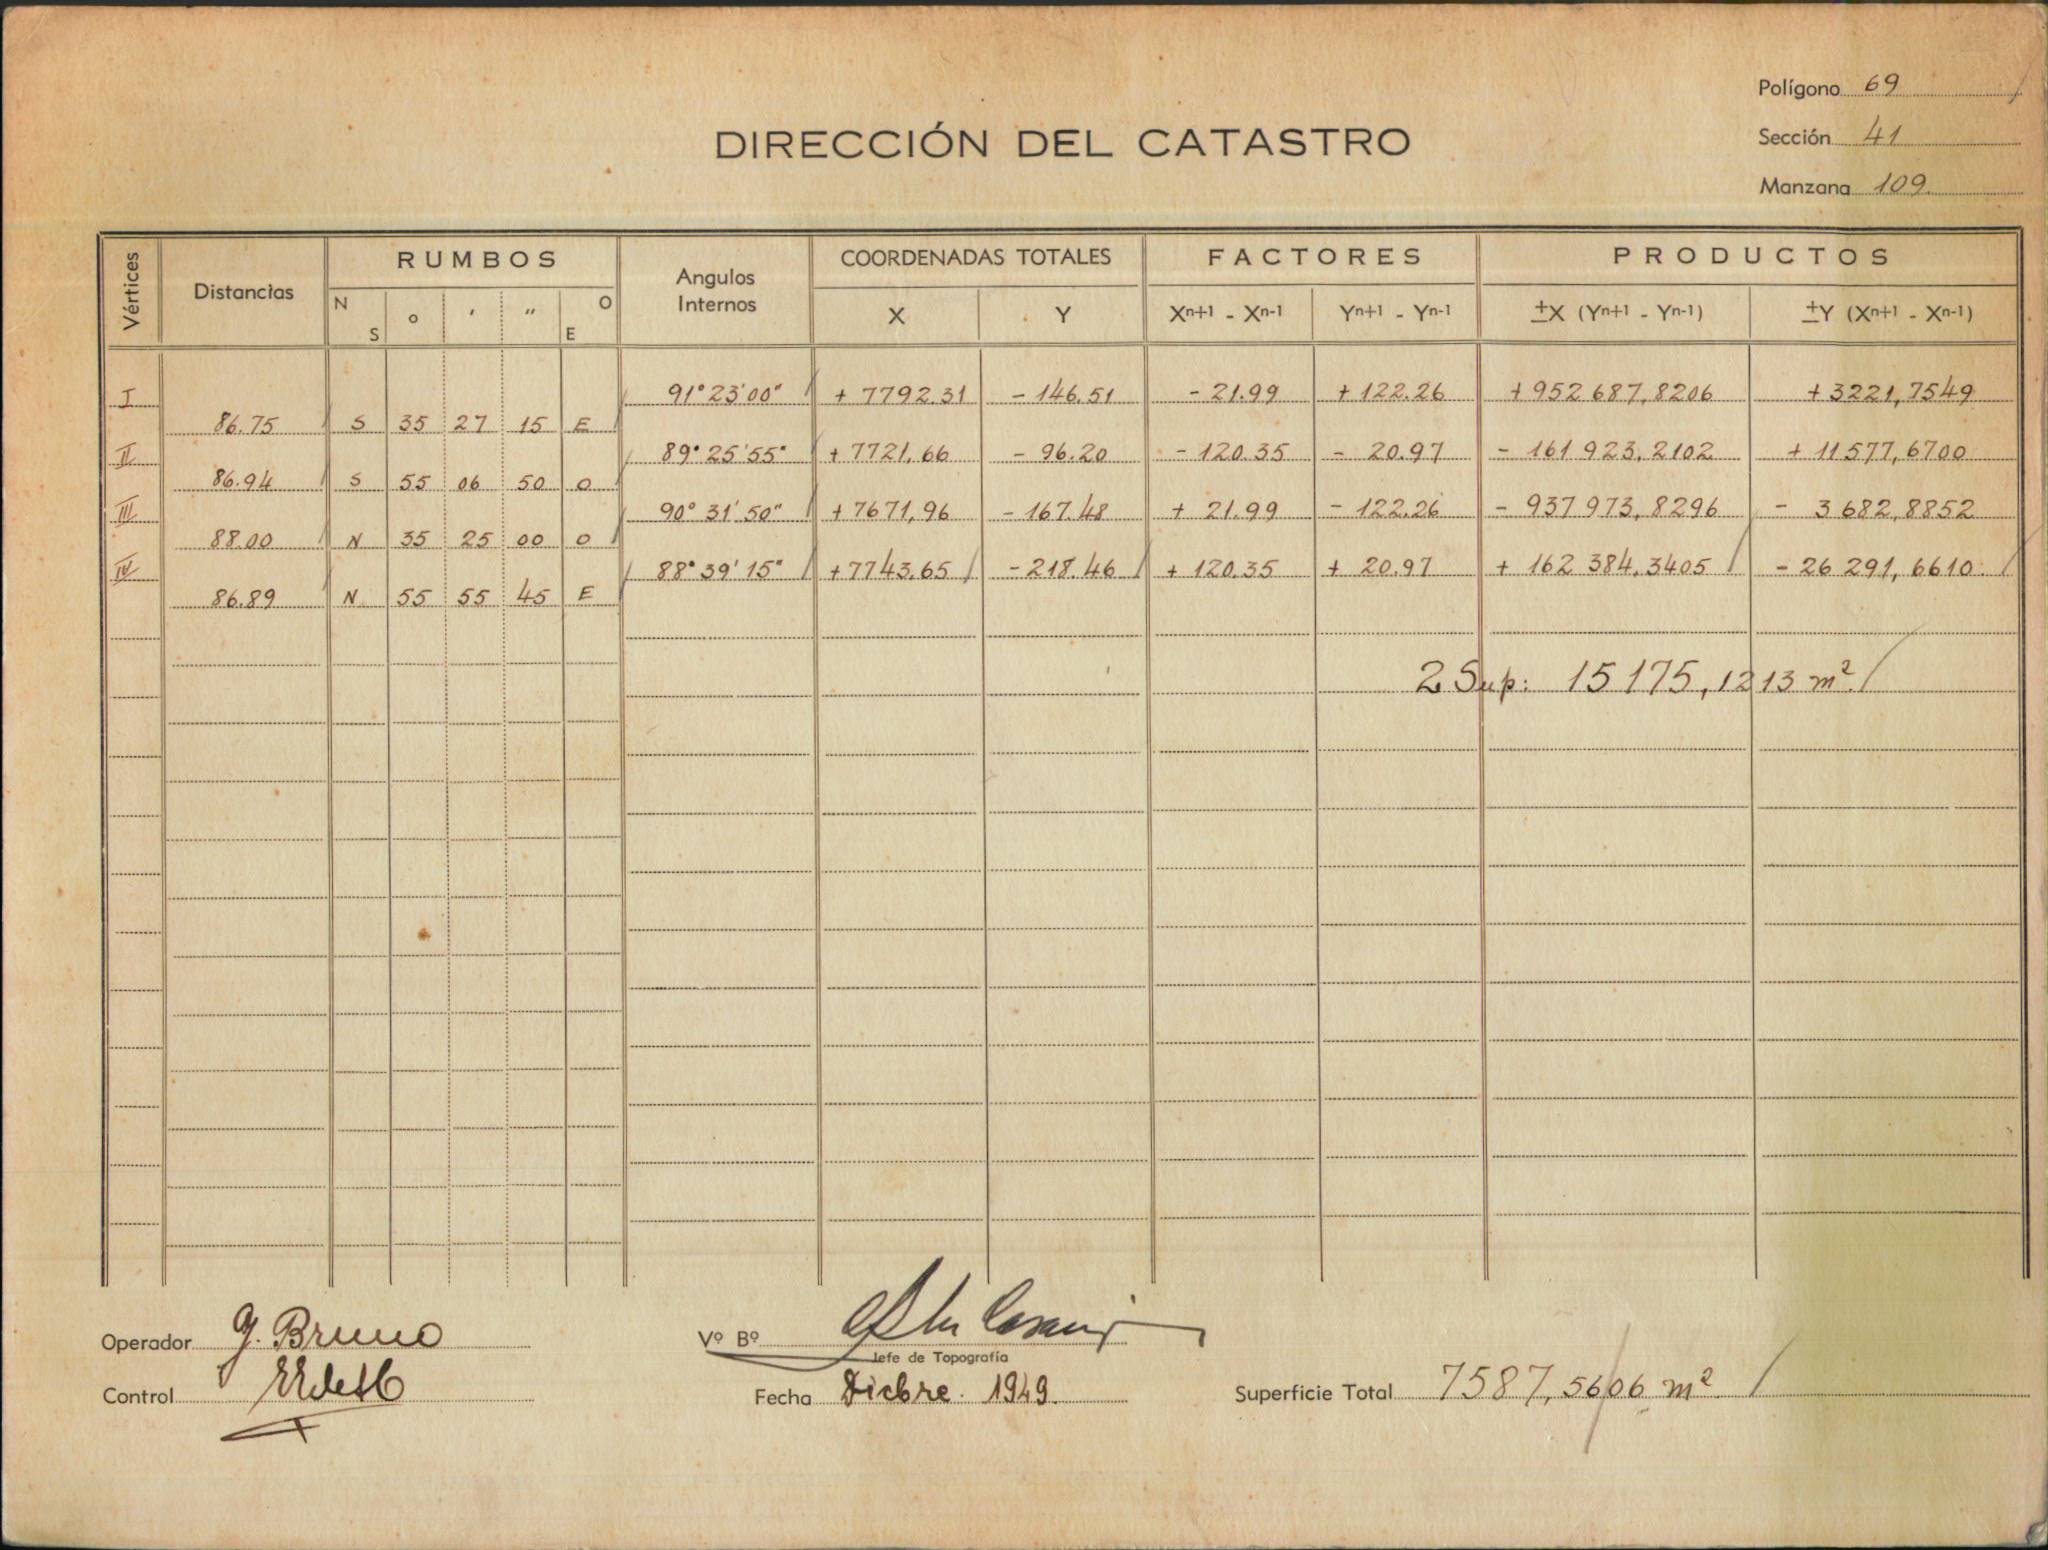 Polígono 69
DIRECCIÓN DEL CATASTRO
Sección 41
Manzana 109.
Vértices Distancias RUMBOS Angulos Internos COORDENADAS TOTALES FACTORES PRODUCTOS
N S o ' " O E X Y Xn+1 - Xn-1 Yn+1 - Yn-1 ±X (Yn+1 - Yn-1) ±Y (Xn+1 - Xn-1)
I 91°23'00" + 7792.31 - 146.51 - 21.99 + 122.26 + 952 687,8206 + 3221,7549
86.75 S 35 27 15 E
II 89°25'55" + 7721,66 - 96.20 - 120.35 - 20.97 - 161 923,2102 + 11577,6700
86.94 S 55 06 50 O
III 90°31'50" + 7671,96 - 167.48 + 21.99 - 122.26 - 937 973,8296 - 3 682,8852
88.00 N 35 25 00 O
IV 88°39'15" + 7743.65 - 218.46 + 120.35 + 20.97 + 162 384,3405 - 26 291,6610
86.89 N 55 55 45 E
2 Sup: 15175,1213 m²
Operador G. Bruno
Vº Bº
Jefe de Topografía
Control
Fecha Dicbre. 1949.
Superficie Total 7587,5606 m²